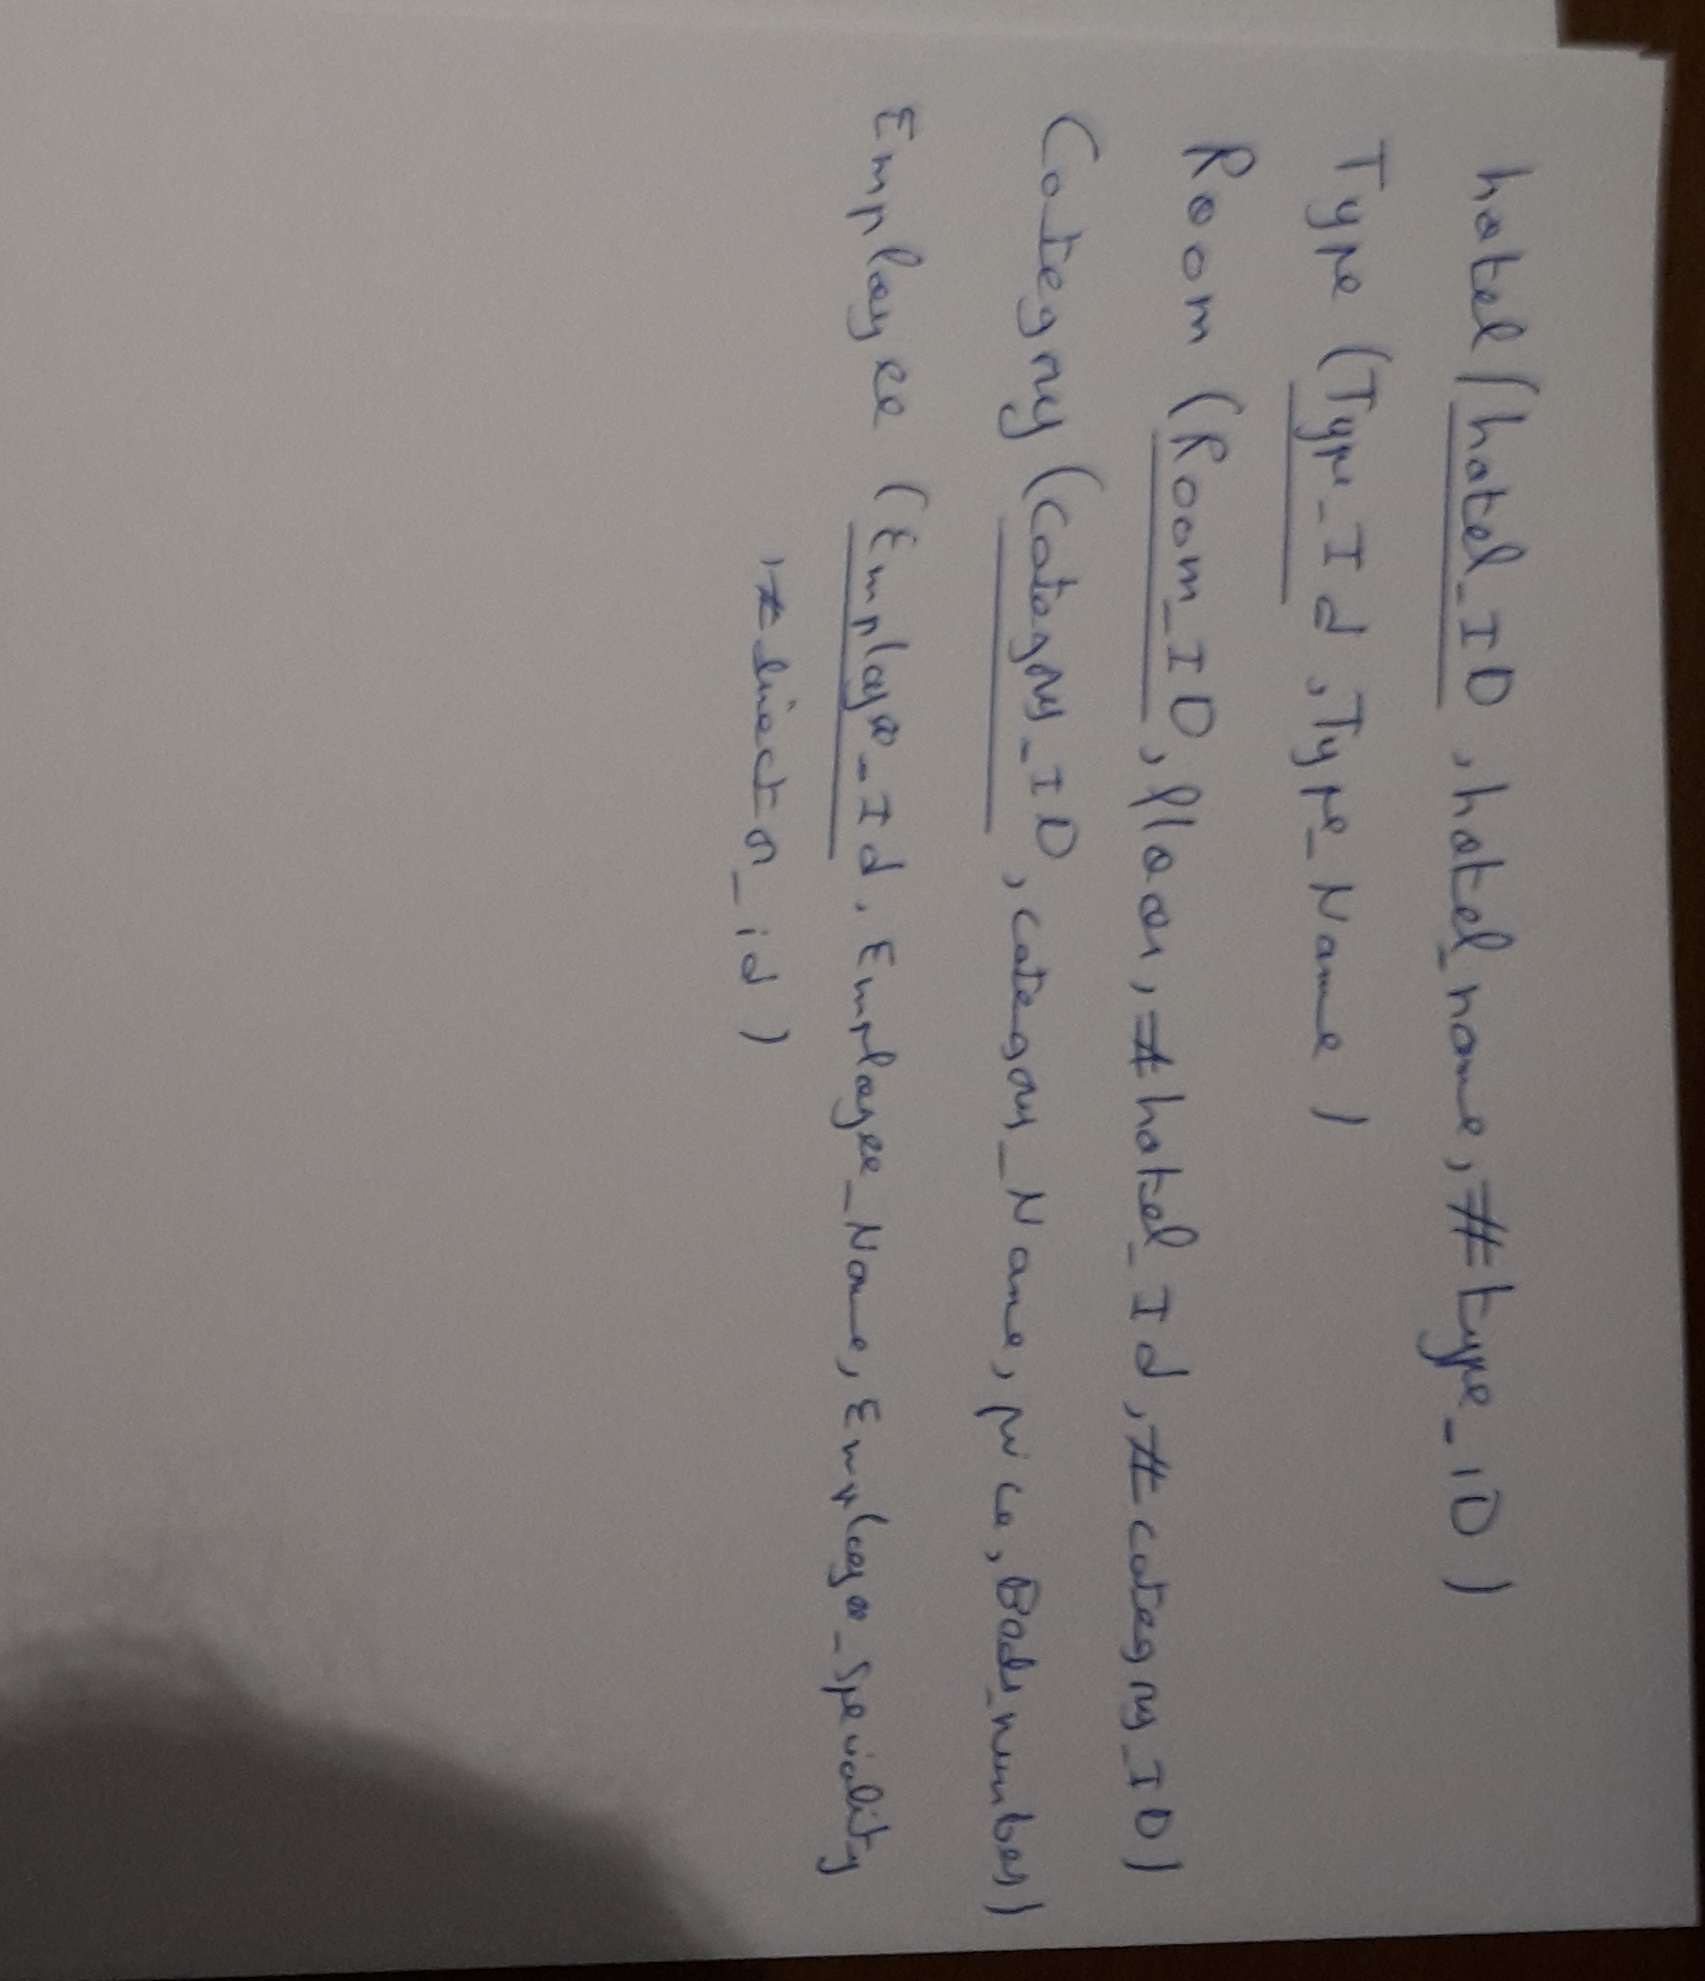 hotel (hotel_ID, hotel_name, #type_iD)
Type (Type_Id, Type_Name)
Room (Room_ID, floor, #hotel_Id, #category_ID)
Category (Category_ID, category_Name, price, Beds_number)
Employee (Employee_Id, Employee_Name, Employee_Speciality
, #director_id)